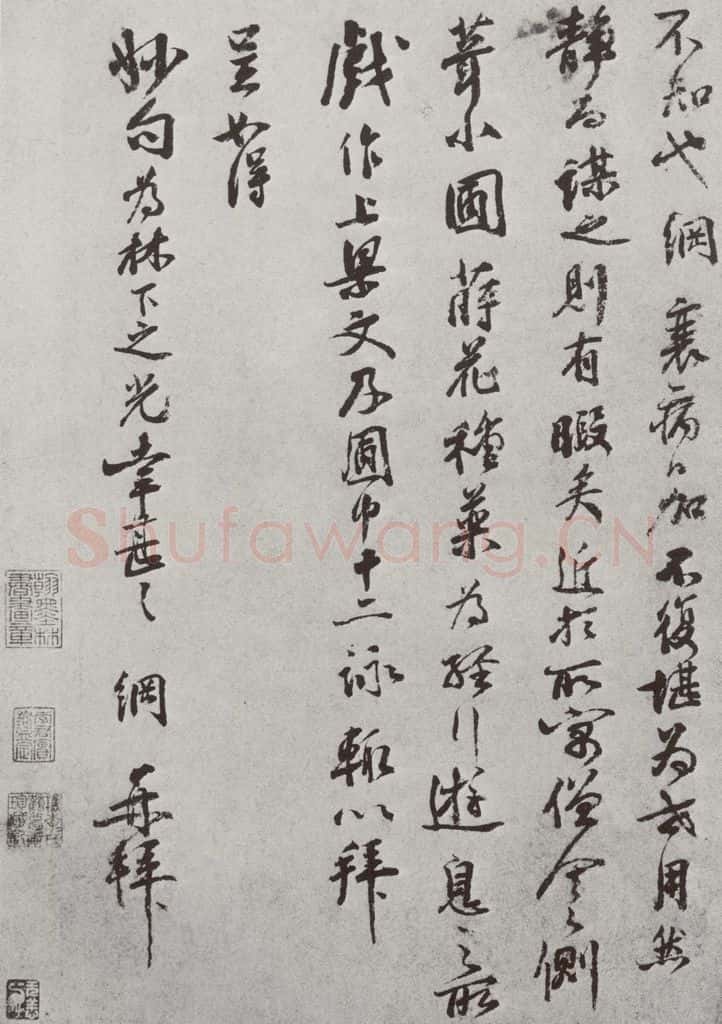 不知也 綱 衰病日加 不復堪為世用 然
静而謀之則有暇矣 近於所寓僧舍之側
葺小圃 蒔花種藥 為經行遊息之所
戲作上梁文及圃中十二詠 輙以拜
呈 如得
妙句為林下之光 幸甚々 綱 再拜
Shufawang.CN